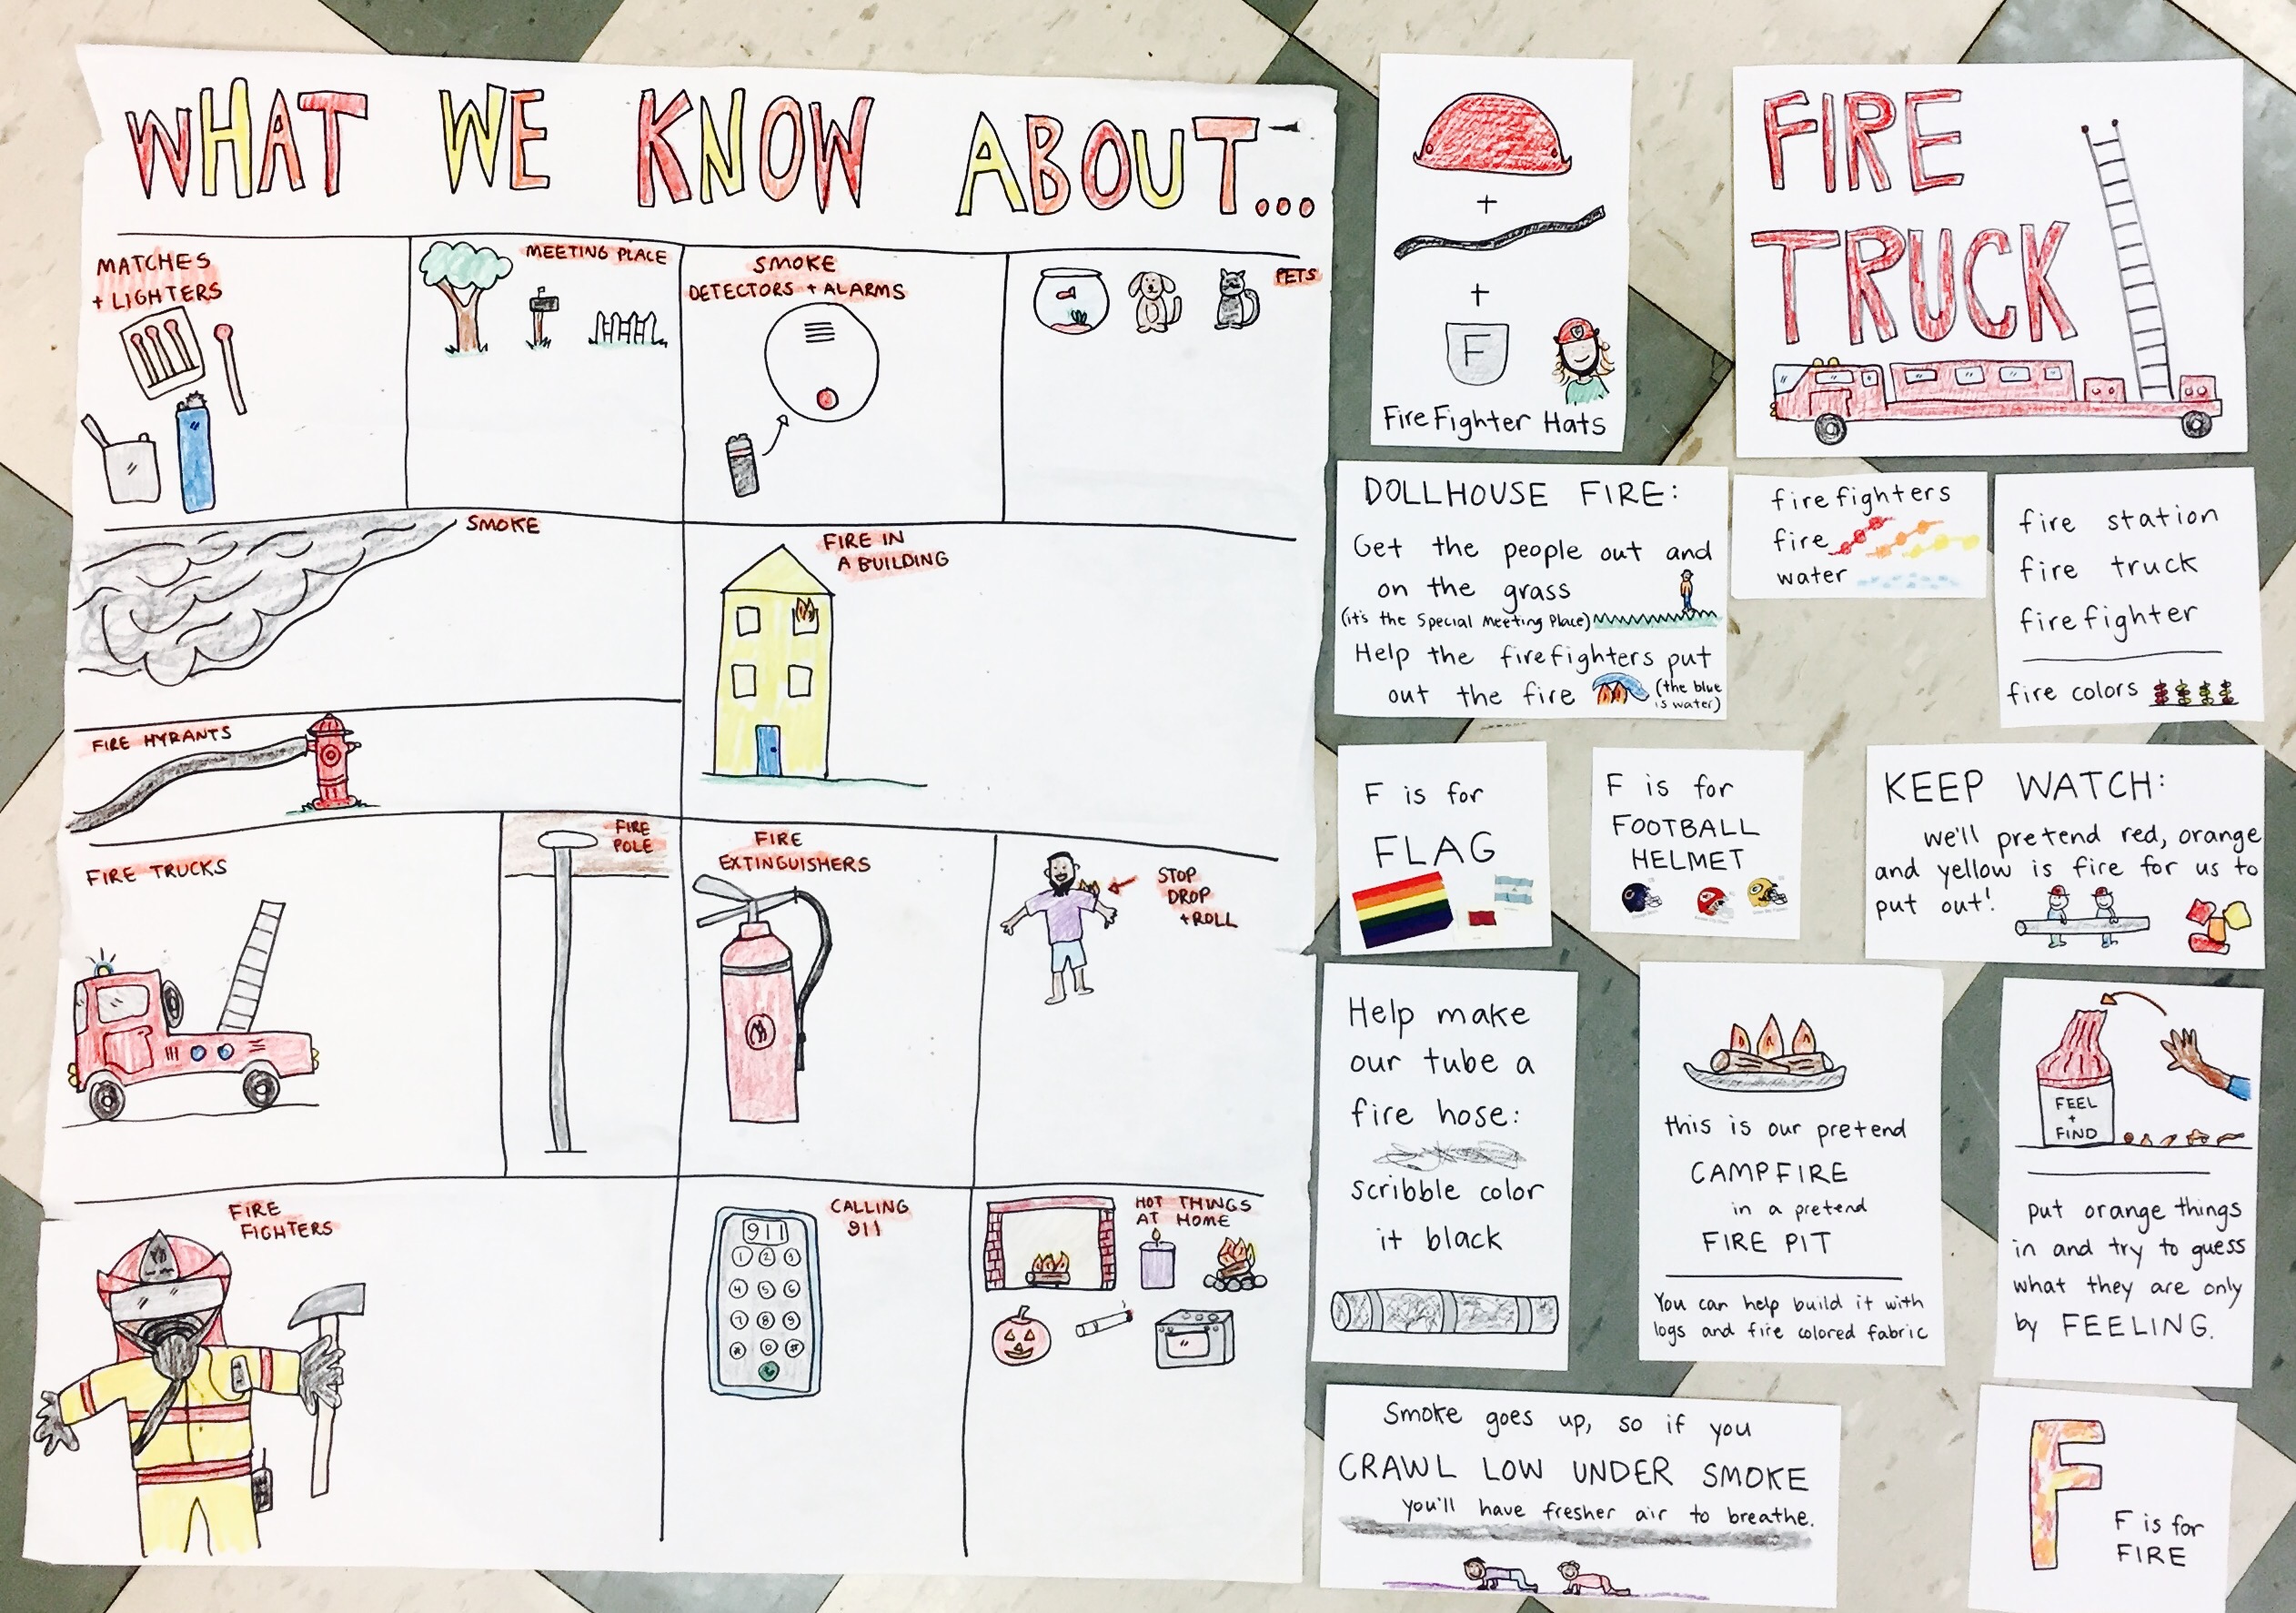 WHAT WE KNOW ABOUT...
MATCHES
+ LIGHTERS
MEETING PLACE
SMOKE
DETECTORS + ALARMS
PETS
SMOKE
FIRE IN
A BUILDING
FIRE HYRANTS
FIRE TRUCKS
FIRE
POLE
FIRE
EXTINGUISHERS
STOP
DROP
+ROLL
FIRE
FIGHTERS
CALLING
911
911
1 2 3
4 5 6
7 8 9
* 0 #
HOT THINGS
AT HOME
+
+
F
FireFighter Hats
FIRE
TRUCK
DOLLHOUSE FIRE:
Get the people out and
on the grass
(it's the Special Meeting Place)
Help the firefighters put
out the fire (the blue
is water)
firefighters
fire
water
fire station
fire truck
firefighter
fire colors
F is for
FLAG
F is for
FOOTBALL
HELMET
KEEP WATCH:
we'll pretend red, orange
and yellow is fire for us to
put out!
Help make
our tube a
fire hose:
scribble color
it black
this is our pretend
CAMPFIRE
in a pretend
FIRE PIT
You can help build it with
logs and fire colored fabric
FEEL
+
FIND
put orange things
in and try to guess
what they are only
by FEELING.
Smoke goes up, so if you
CRAWL LOW UNDER SMOKE
you'll have fresher air to breathe.
F
F is for
FIRE